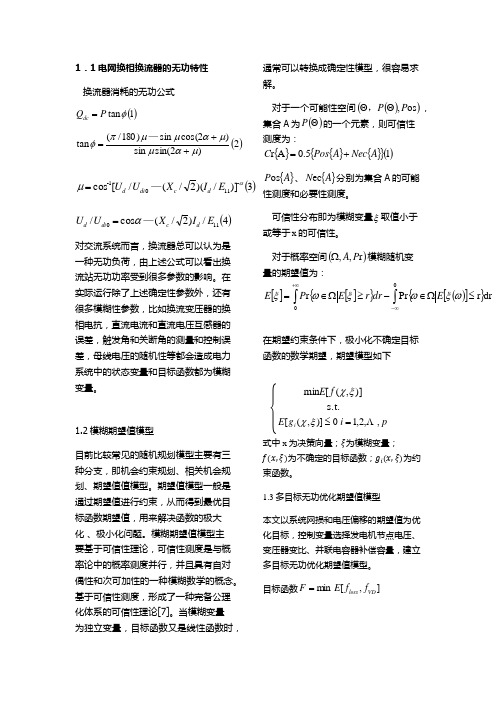 1．1电网换相换流器的无功特性
换流器消耗的无功公式
Q_dc = P tanφ(1)
tanφ = ((π/180)μ — sin μ cos(2α + μ)) / (sin μ sin(2α + μ)) (2)
μ = cos^-1[U_d / U_di0 — (X_c / 2)(I_d / E_11)]^-α (3)
U_d / U_di0 = cosα — (X_c / 2)I_d / E_11 (4)
对交流系统而言，换流器总可以认为是
一种无功负荷，由上述公式可以看出换
流站无功功率受到很多参数的影响。在
实际运行除了上述确定性参数外，还有
很多模糊性参数，比如换流变压器的换
相电抗，直流电流和直流电压互感器的
误差，触发角和关断角的测量和控制误
差，母线电压的随机性等都会造成电力
系统中的状态变量和目标函数都为模糊
变量。
1.2 模糊期望值模型
目前比较常见的随机规划模型主要有三
种分支，即机会约束规划、相关机会规
划、期望值值模型。期望值模型一般是
通过期望值进行约束，从而得到最优目
标函数期望值，用来解决函数的极大
化 、极小化问题。模糊期望值模型主
要基于可信性理论，可信性测度是与概
率论中的概率测度并行，并且具有自对
偶性和次可加性的一种模糊数学的概念。
基于可信性测度，形成了一种完备公理
化体系的可信性理论[7]。当模糊变量
为独立变量，目标函数又是线性函数时，
通常可以转换成确定性模型，很容易求
解。
对于一个可能性空间(Θ，P(Θ), Pos)，
集合 A 为P(Θ)的一个元素，则可信性
测度为：
Cr{A} = 0.5{Pos{A} + Nec{A}}(1)
Pos{A}、Nec{A}分别为集合 A 的可能
性测度和必要性测度。
可信性分布即为模糊变量ξ取值小于
或等于 x 的可信性。
对于概率空间(Ω, A, Pr)模糊随机变
量的期望值为：
E[ξ] = ∫_0^+∞ Pr{ω ∈ Ω|E[ξ] ≥ r}dr − ∫_−∞^0 Pr{ω ∈ Ω|E[ξ(ω)] ≤ r}dr
在期望约束条件下，极小化不确定目标
函数的数学期望，期望模型如下
min E[f(χ,ξ)]
s.t.
E[g_i(χ,ξ)] ≤ 0 i = 1,2,Λ , p
式中 x 为决策向量；ξ为模糊变量；
f (x,ξ)为不确定的目标函数；g_i(x,ξ)为约
束函数。
1.3 多目标无功优化期望值模型
本文以系统网损和电压偏移的期望值为优
化目标，控制变量选择发电机节点电压、
变压器变比、并联电容器补偿容量，建立
多目标无功优化期望值模型。
目标函数F = min E[f_loss, f_VD]